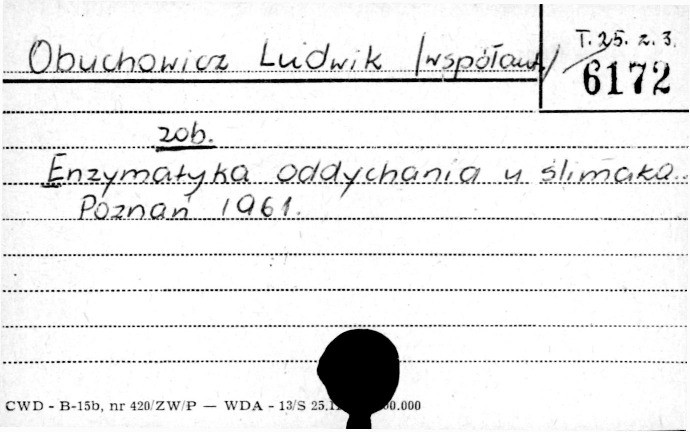 Obuchowicz Ludwik /współaut./
T. 25. z. 3.
6172
zob.
Enzymatyka oddychania u ślimaka..
Poznań 1961.
CWD - B-15b, nr 420/ZW/P — WDA - 13/S 25.1 00.000